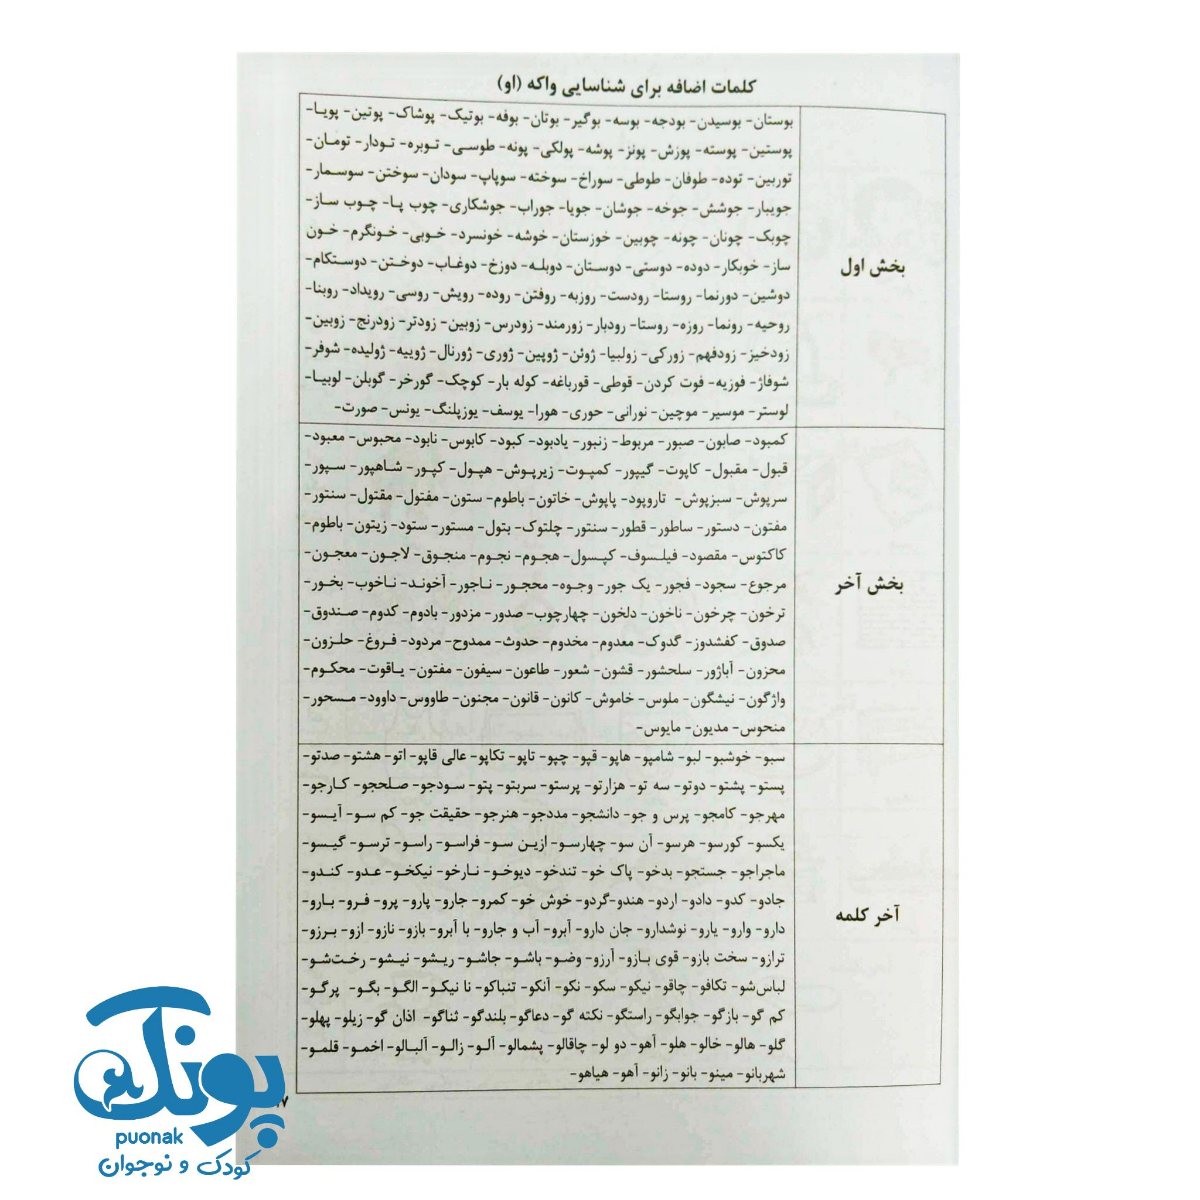 کلمات اضافه برای شناسایی واکه (او)
بخش اول
بوستان- بوسیدن- بودجه- بوسه- بوگیر- بوتان- بوفه- بوتیک- پوشاک- پوتین- پویا-
پوستین- پوسته- پوزش- پونز- پوشه- پولکی- پونه- طوسی- توبره- تودار- تومان-
توربین- توده- طوفان- طوطی- سوراخ- سوخته- سوپاپ- سودان- سوختن- سوسمار-
جویبار- جوشش- جوخه- جوشان- جویا- جوراب- جوشکاری- چوب پا- چوب ساز-
چوبک- چونان- چونه- چوبین- خوزستان- خوشه- خونسرد- خوبی- خونگرم- خون
ساز- خوبکار- دوده- دوستی- دوستان- دوبله- دوزخ- دوغاب- دوختن- دوستکام-
دوشین- دورنما- روستا- رودست- روزبه- روفتن- روده- رویش- روسی- رویداد- روبنا-
روحیه- رونما- روزه- روستا- رودبار- زورمند- زودرس- زوبین- زودتر- زودرنج- زوبین-
زودخیز- زودفهم- زورکی- زولبیا- ژوئن- ژوپین- ژوری- ژورنال- ژوپیه- ژولیده- شوفر-
شوفاژ- فوزیه- فوت کردن- قوطی- قورباغه- کوله بار- کوچک- گورخر- گوبلن- لوبیا-
لوستر- موسیر- موچین- نورانی- حوری- هورا- یوسف- یوزپلنگ- یونس- صورت-
بخش آخر
کمبود- صابون- صبور- مربوط- زنبور- یادبود- کبود- کابوس- نابود- محبوس- معبود-
قبول- مقبول- کاپوت- گیپور- کمپوت- زیرپوش- هپول- کپور- شاهپور- سپور-
سرپوش- سبزپوش- تاروپود- پاپوش- خاتون- باطوم- ستون- مفتول- مقتول- سنتور-
مفتون- دستور- ساطور- قطور- سنتور- چلتوک- بتول- مستور- ستود- زیتون- باطوم-
کاکتوس- مقصود- فیلسوف- کپسول- هجوم- نجوم- منجوق- لاجون- معجون-
مرجوع- سجود- فجور- یک جور- وجوه- محجور- ناجور- آخوند- ناخوب- بخور-
ترخون- چرخون- ناخون- دلخون- چهارچوب- صدور- مزدور- بادوم- کدوم- صندوق-
صدوق- کفشدوز- گدوک- معدوم- مخدوم- حدوث- ممدوح- مردود- فروغ- حلزون-
محزون- آباژور- سلحشور- قشون- شعور- طاعون- سیفون- مفتون- یاقوت- محکوم-
واژگون- نیشگون- ملوس- خاموش- کانون- قانون- مجنون- طاووس- داوود- مسحور-
منحوس- مدیون- مایوس-
آخر کلمه
سبو- خوشبو- لبو- شامپو- هاپو- قپو- چپو- تاپو- تکاپو- عالی قاپو- اتو- هشتو- صدتو-
پستو- پشتو- دوتو- سه تو- هزارتو- پرستو- سربتو- پتو- سودجو- صلحجو- کارجو-
مهرجو- کامجو- پرس و جو- دانشجو- مددجو- هنرجو- حقیقت جو- کم سو- آیسو-
یکسو- کورسو- هرسو- آن سو- چهارسو- ازین سو- فراسو- راسو- ترسو- گیسو-
ماجراجو- جستجو- بدخو- پاک خو- تندخو- دیوخو- نارخو- نیکخو- عدو- کندو-
جادو- کدو- دادو- اردو- هندو-گردو- خوش خو- کمرو- جارو- پارو- پرو- فرو- بارو-
دارو- وارو- یارو- نوشدارو- جان دارو- آبرو- آب و جارو- با آبرو- بازو- نازو- ازو- برزو-
ترازو- سخت بازو- قوی بازو- آرزو- وضو- باشو- جاشو- ریشو- نیشو- رخت‌شو-
لباس‌شو- تکافو- چاقو- نیکو- سکو- نکو- آنکو- تنباکو- نا نیکو- الگو- بگو- پرگو-
کم گو- بازگو- جوابگو- راستگو- نکته گو- دعاگو- بلندگو- ثناگو- اذان گو- زیلو- پهلو-
گلو- هالو- خالو- هلو- آهو- دو لو- چاقالو- پشمالو- آلو- زالو- آلبالو- اخمو- قلمو-
شهربانو- مینو- بانو- زانو- آهو- هیاهو-
۷
پونک
puonak
کودک و نوجوان